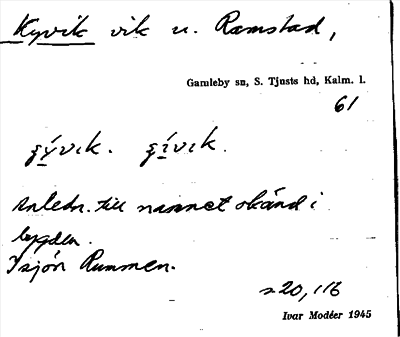 Kyvik vik u. Ramstad,
Gamleby sn, S. Tjusts hd, Kalm. l.
61
ȷývık. ȷívık.
Anledn. till namnet okänd i
bygden.
I sjön Rummen.
s 20, 116
Ivar Modéer 1945